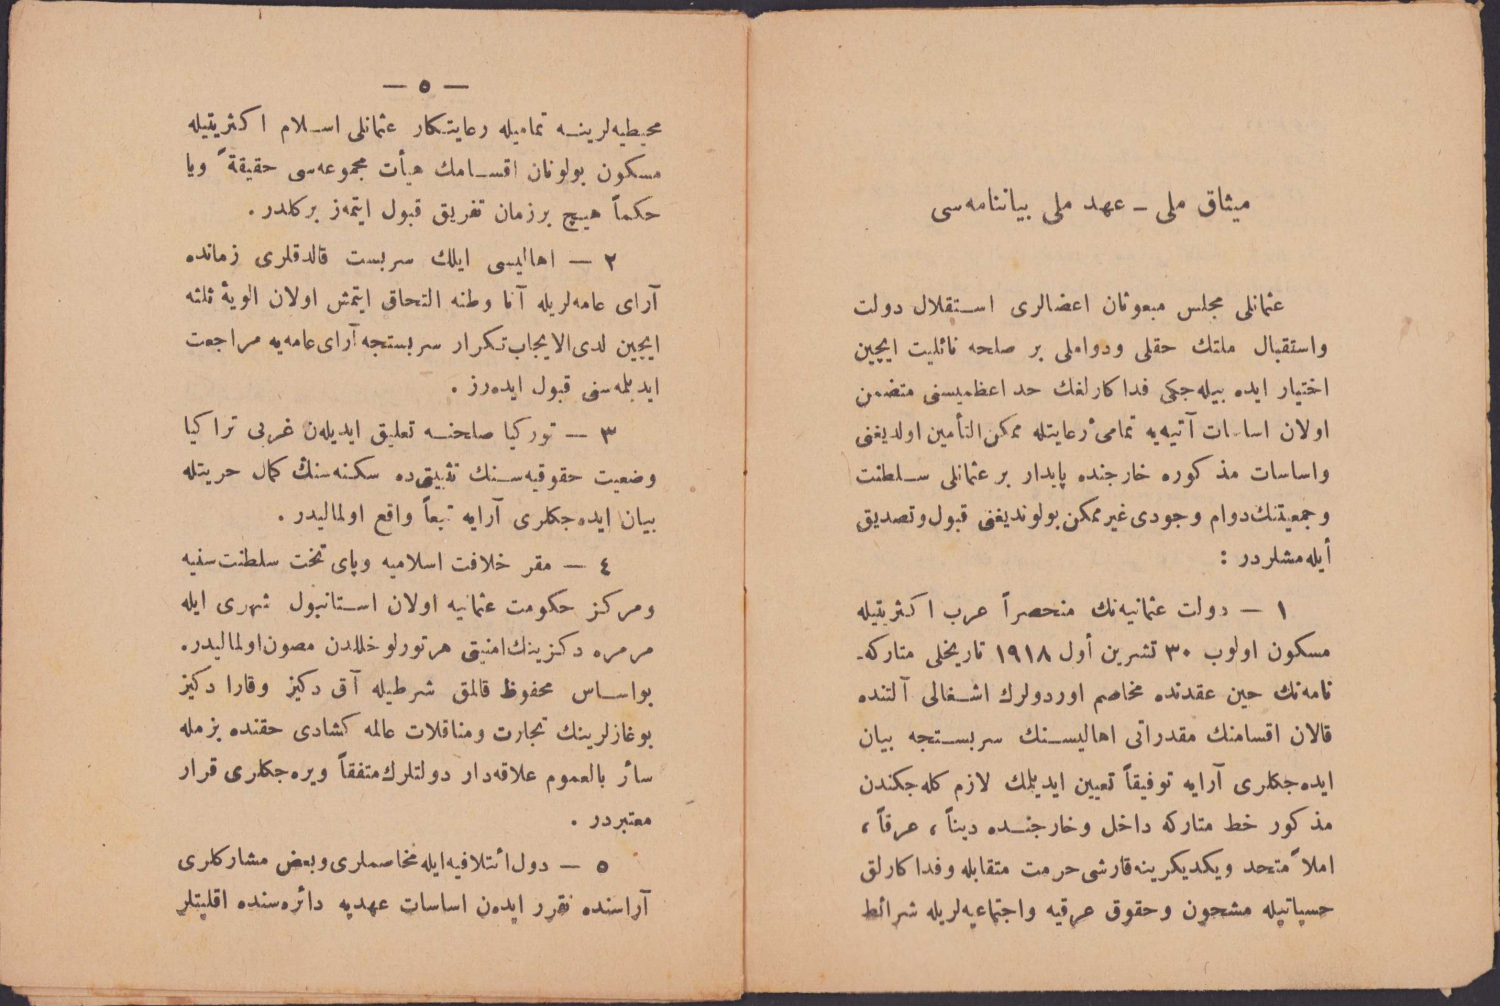 ميثاق ملی ـ عهد ملی بياننامه‌سی
عثمانلی مجلس مبعوثان اعضالری استقلال دولت
واستقبال ملتك حقلی ودواملی بر صلحه نائليت ايچين
اختيار ايده بيله‌جكی فداكارلغك حد اعظميسنی متضمن
اولان اساسات آتيه‌يه تمامئ رعايتله ممكن التأمين اولديغنی
واساسات مذكوره خارجنده پايدار بر عثمانلی سلطنت
وجمعيتنك دوام وجودی غير ممكن بولونديغنی قبول وتصديق
أيله‌مشلردر :
١ — دولت عثمانيه‌نك منحصراً عرب اكثريتيله
مسكون اولوب ٣٠ تشرين أول ١٩١٨ تاريخلی متاركه‌ـ
نامه‌نك حين عقدنده مخاصم اوردولرك اشغالی آلتنده
قالان اقسامنك مقدراتی اهاليسنك سربستجه بيان
ايده‌جكلری آرايه توفيقاً تعيين ايديلمك لازم كله‌جكندن
مذكور خط متاركه داخل وخارجنده ديناً ، عرقاً ،
املاً متحد ويكديكرينه قارشی حرمت متقابله وفداكارلق
حسياتيله مشحون وحقوق عرقيه واجتماعيه‌لريله شرائط
— ٥ —
محيطيه‌لرينه تماميله رعايتكار عثمانلی اسلام اكثريتيله
مسكون بولونان اقسامك هيأت مجموعه‌سی حقيقةً ويا
حكماً هيچ برزمان تفريق قبول ايتمه‌ز بركلدر .
٢ — اهاليسی ايلك سربست قالدقلری زمانده
آرای عامه‌لريله آنا وطنه التحاق ايتمش اولان الويۀ ثلثه
ايچين لدی الايجاب تكرار سربستجه آرای عامه‌يه مراجعت
ايديلمه‌سنی قبول ايده‌رز .
٣ — توركيا صلحنه تعليق ايديله‌ن غربی تراكيا
وضعيت حقوقيه‌سنك تثبيتی ده سكنه‌سنك كمال حريتله
بيان ايده‌جكلری آرايه تبعاً واقع اولماليدر .
٤ — مقر خلافت اسلاميه وپای تخت سلطنت سنيه
ومركز حكومت عثمانيه اولان استانبول شهری ايله
مرمره دكزينك امنيتی هرتورلو خللدن مصون اولماليدر.
بواساس محفوظ قالمق شرطيله آق دكيز وقارا دكيز
بوغازلرينك تجارت ومناقلات عالمه كشادی حقنده بزمله
سائر بالعموم علاقه‌دار دولتلرك متفقاً ويره‌جكلری قرار
معتبردر .
٥ — دول ائتلافيه ايله مخاصملری وبعض مشاركلری
آراسنده تقرر ايده‌ن اساسات عهديه دائره‌سنده اقليتلر